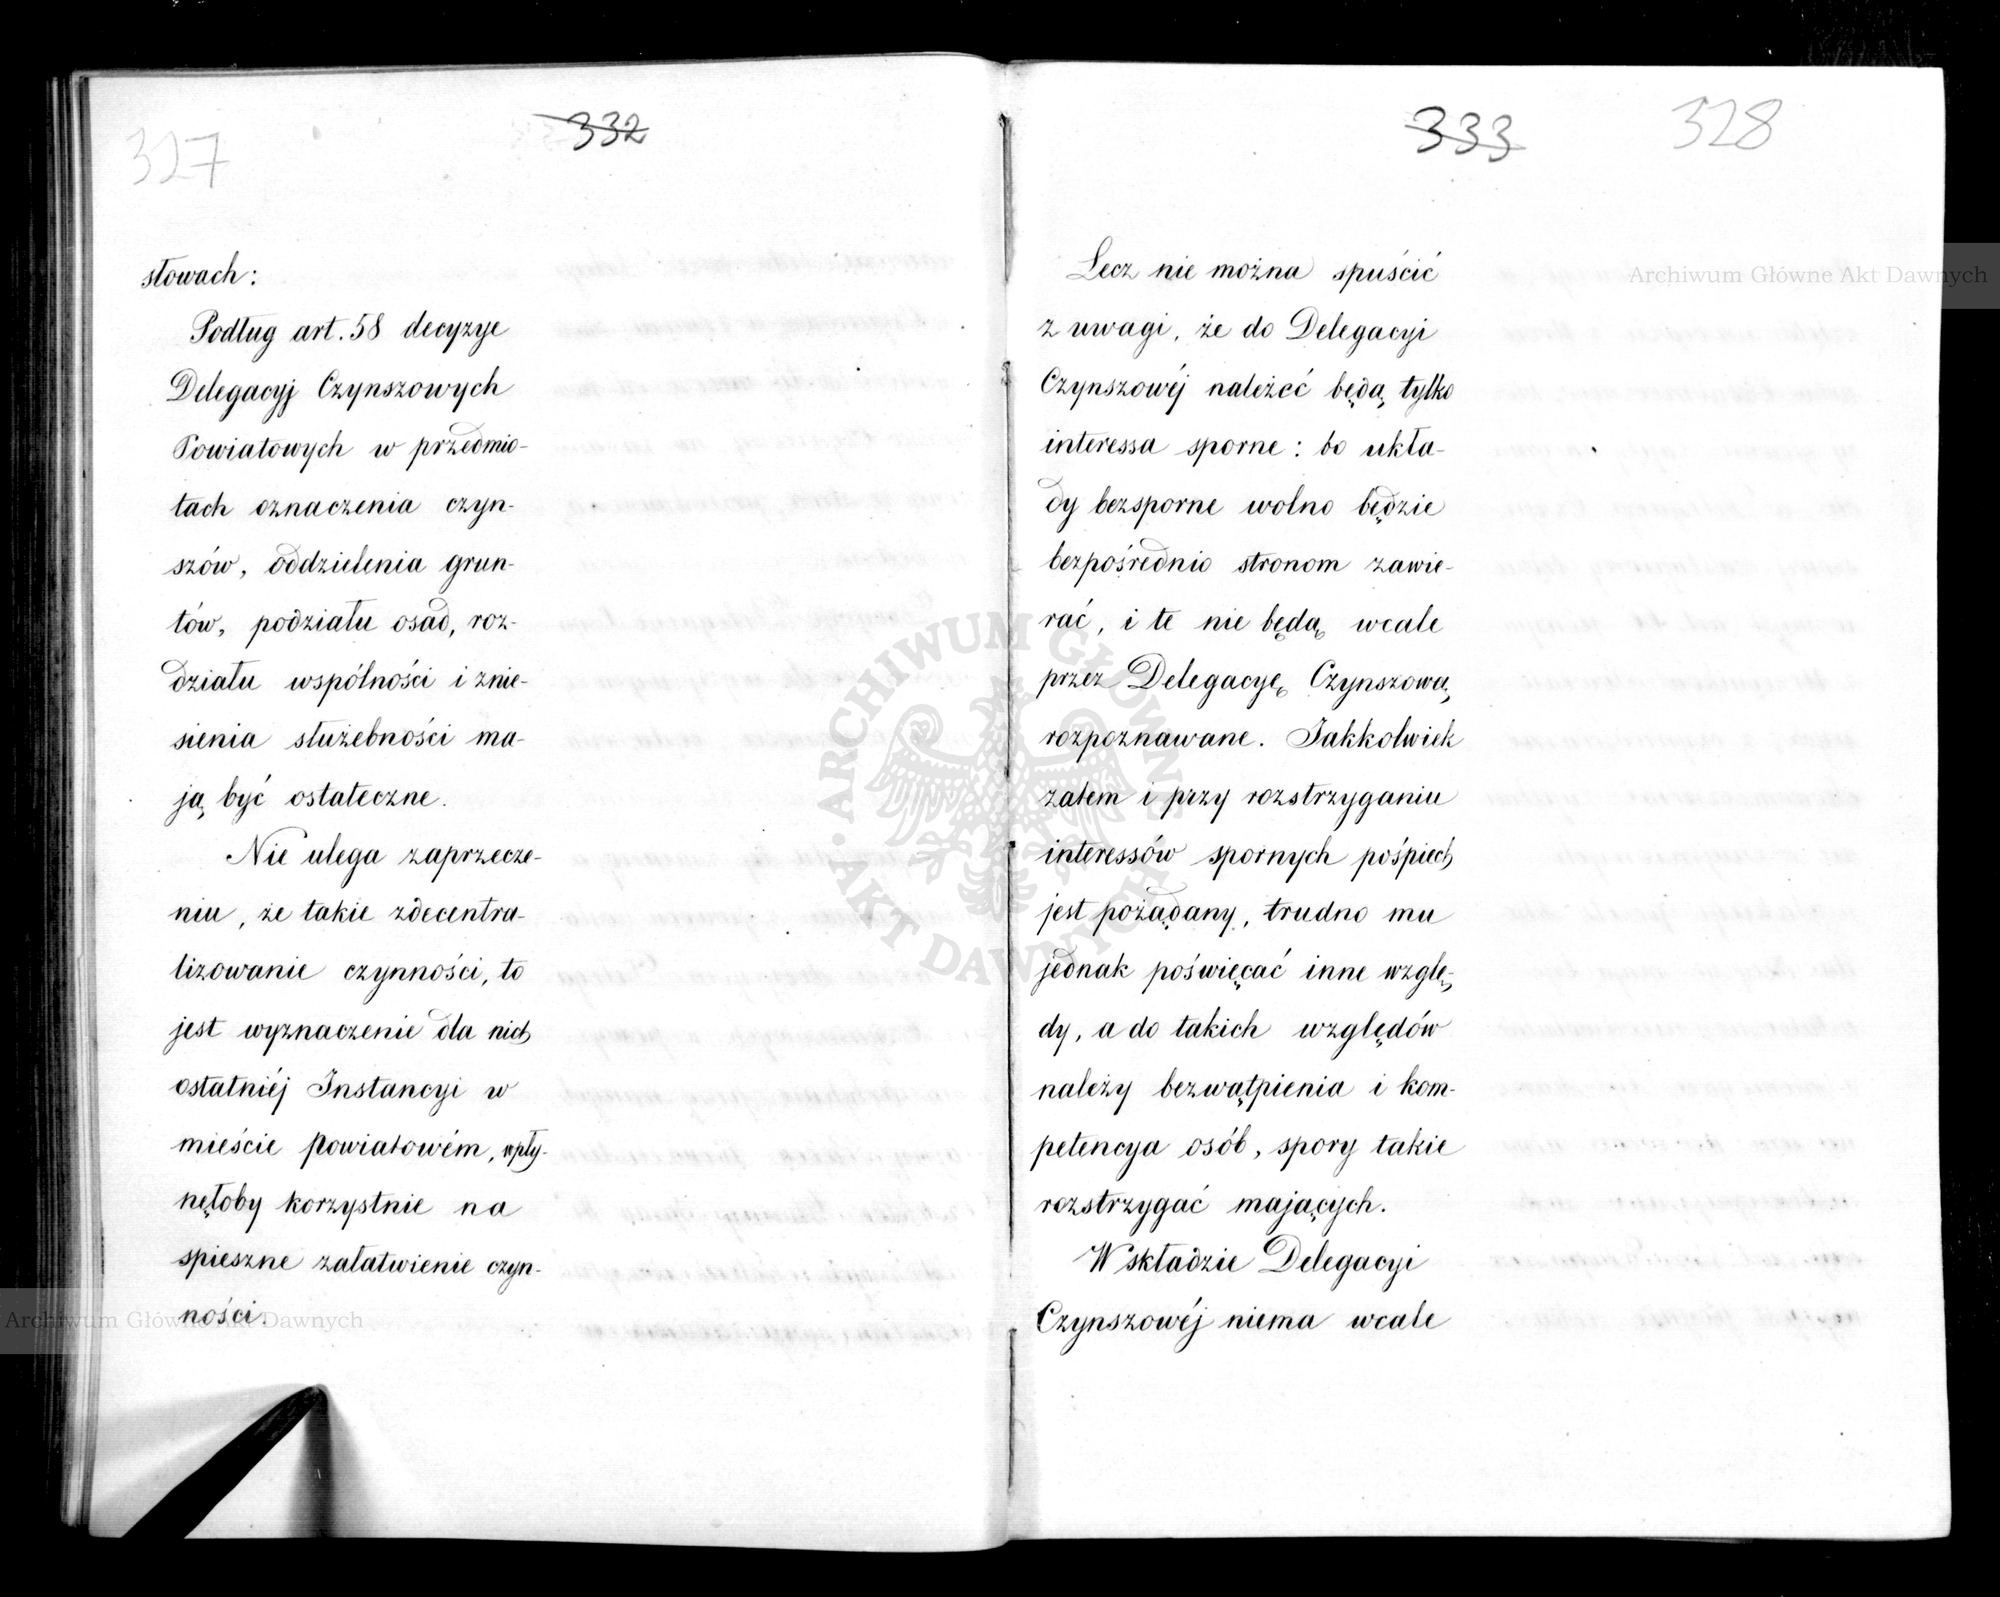 327
332
słowach:
Podług art. 58 decyzye
Delegacyj Czynszowych
Powiatowych w przedmio-
tach oznaczenia czyn-
szów, oddzielenia grun-
tów, podziału osad, roz-
działu wspólności i znie-
sienia służebności ma-
ją być ostateczne.
Nie ulega zaprzecze-
niu, że takie zdecentra-
lizowanie czynności, to
jest wyznaczenie dla nich
ostatniéj Instancyi w
mieście powiatowém, wpły-
nęłoby korzystnie na
spieszne załatwienie czyn-
ności.
333
328
Lecz nie można spuścić
z uwagi, że do Delegacyi
Czynszowéj należeć będą tylko
interessa sporne: bo ukła-
dy bezsporne wolno będzie
bezpośrednio stronom zawie-
rać, i te nie będą wcale
przez Delegacyę Czynszową
rozpoznawane. Jakkolwiek
zatem i przy rozstrzyganiu
interessów spornych pośpiech
jest pożądany, trudno mu
jednak poświęcać inne wzglę-
dy, a do takich względów
należy bezwątpienia i kom-
petencya osób, spory takie
rozstrzygać mających.
W składzie Delegacyi
Czynszowéj niema wcale
Archiwum Główne Akt Dawnych
ARCHIWUM GŁÓWNE
AKT DAWNYCH
Archiwum Główne Akt Dawnych